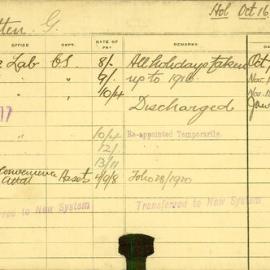 tten. G. Hol Oct 16
OFFICE DEPT. RATE OF PAY REMARKS
Lab CS 8/- All holidays taken Oct
" 9/- up to 1916 Nov.
" 10/4 Nov.
Discharged Jan
17
10/4 Re-appointed Temporarily.
12/-
13/11
Convenience Assets 4/9/8 Folio 28/1920
Attdt
rred to New System Transferred to New System